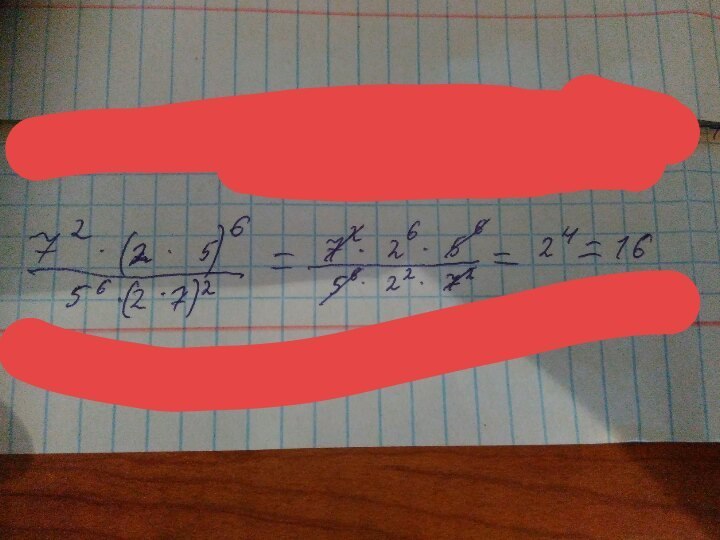 7² · (2 · 5)⁶ / 5⁶ · (2 · 7)² = 7² · 2⁶ · 5⁶ / 5⁶ · 2² · 7² = 2⁴ = 16